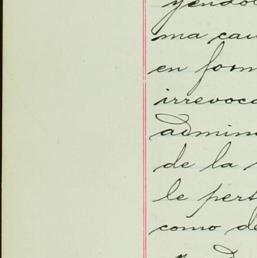 yendo
ma cau
en form
irrevoca
admini
de la
le pert
como de